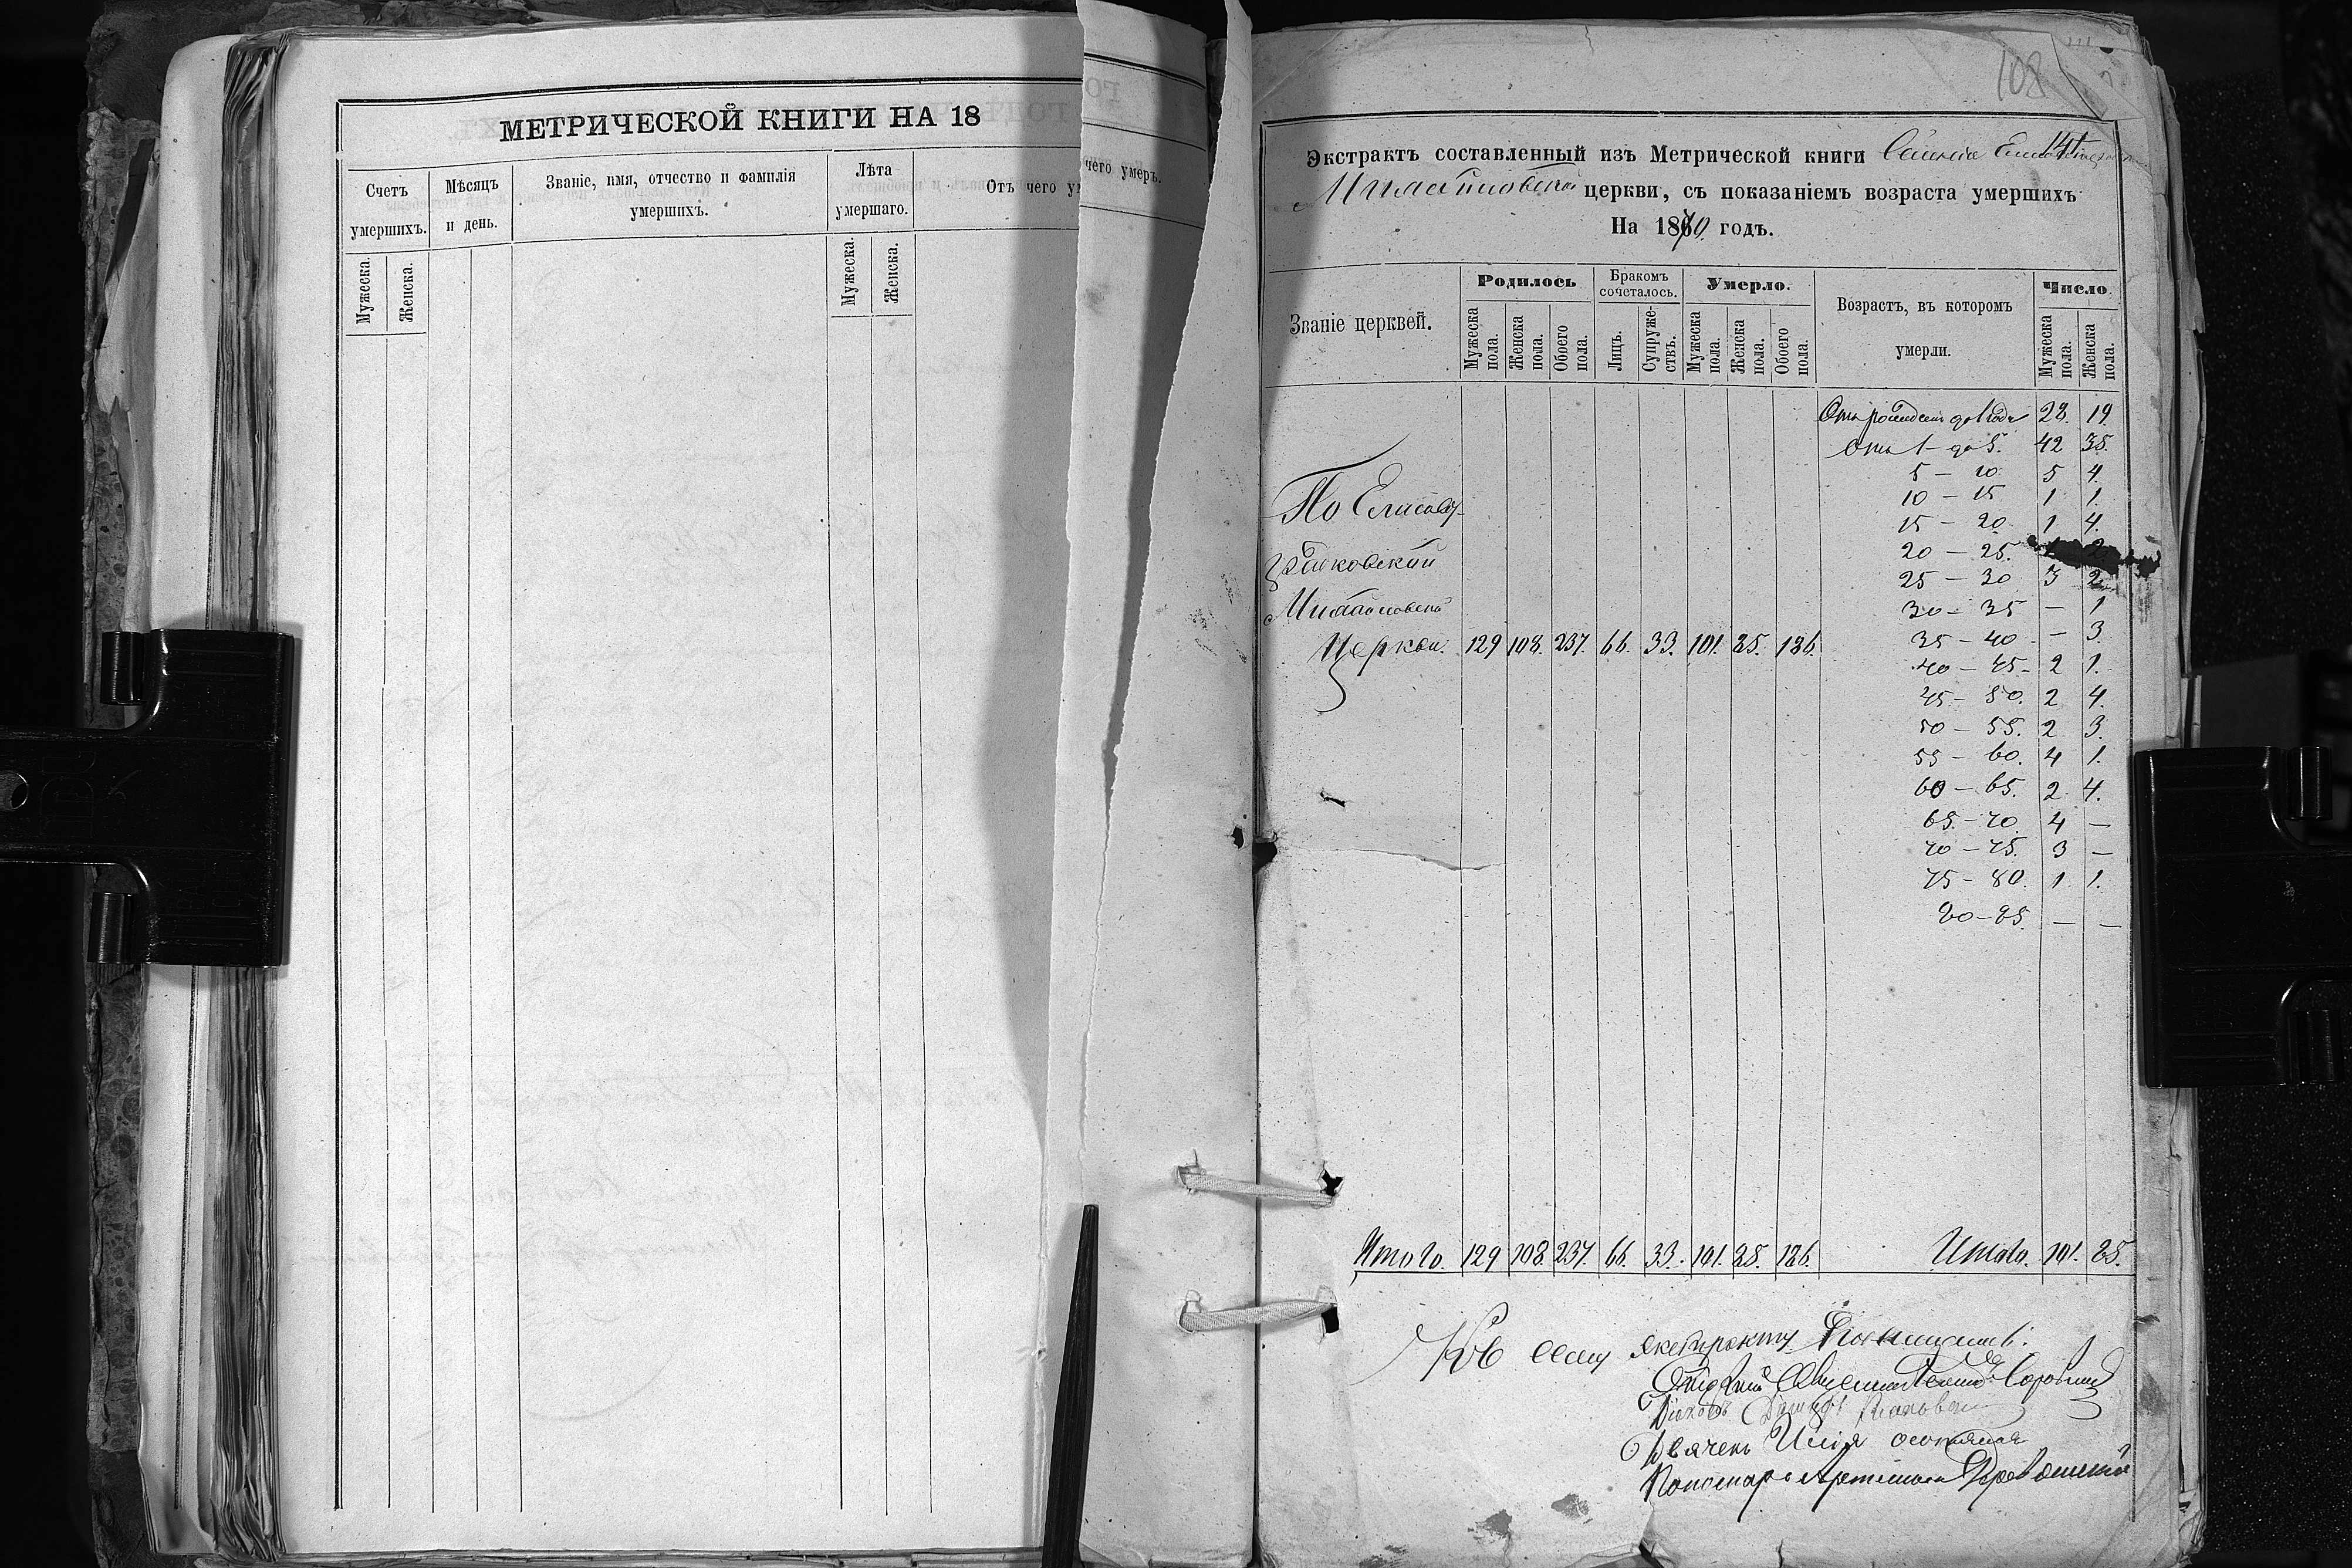 МЕТРИЧЕСКОЙ КНИГИ НА 18
Счетъ умершихъ.
Мѣсяцъ и день.
Званіе, имя, отчество и фамилія умершихъ.
Лѣта умершаго.
Отъ чего ум
чего умеръ.
Мужеска.
Женска.
Мужеска.
Женска.
108
141
Экстрактъ составленный изъ Метрической книги
церкви, съ показаніемъ возраста умершихъ
На 1870. годъ.
Званіе церквей.
Родилось
Бракомъ сочеталось.
Умерло.
Возрастъ, въ которомъ умерли.
Число.
Мужеска пола.
Женска пола.
Обоего пола.
Лицъ.
Супружествъ.
Мужеска пола.
Женска пола.
Обоего пола.
Мужеска пола.
Женска пола.
Отъ рожденія до 1 года 28. 19.
Отъ 1 - до 5. 42 35.
5 - 10 5 4.
10 - 15 1 1.
15 - 20 1 4.
20 - 25. 2
25 - 30 3 2
30 - 35 — 1
35 - 40 — 3
40 - 45 - 2 1.
45 - 50. 2 4.
50 - 55. 2 3.
55 - 60. 4 1.
60 - 65. 2 4.
65 - 70. 4 —
70 - 75. 3 —
75 - 80. 1 1.
80 - 85. — —
По Елисавет-
Церкви. 129 108. 237. 66. 33. 101. 85. 186.
Итого. 129 108. 237. 66. 33. 101. 85. 186. Итого. 101. 85.
Къ сему экстракту
Пономарь